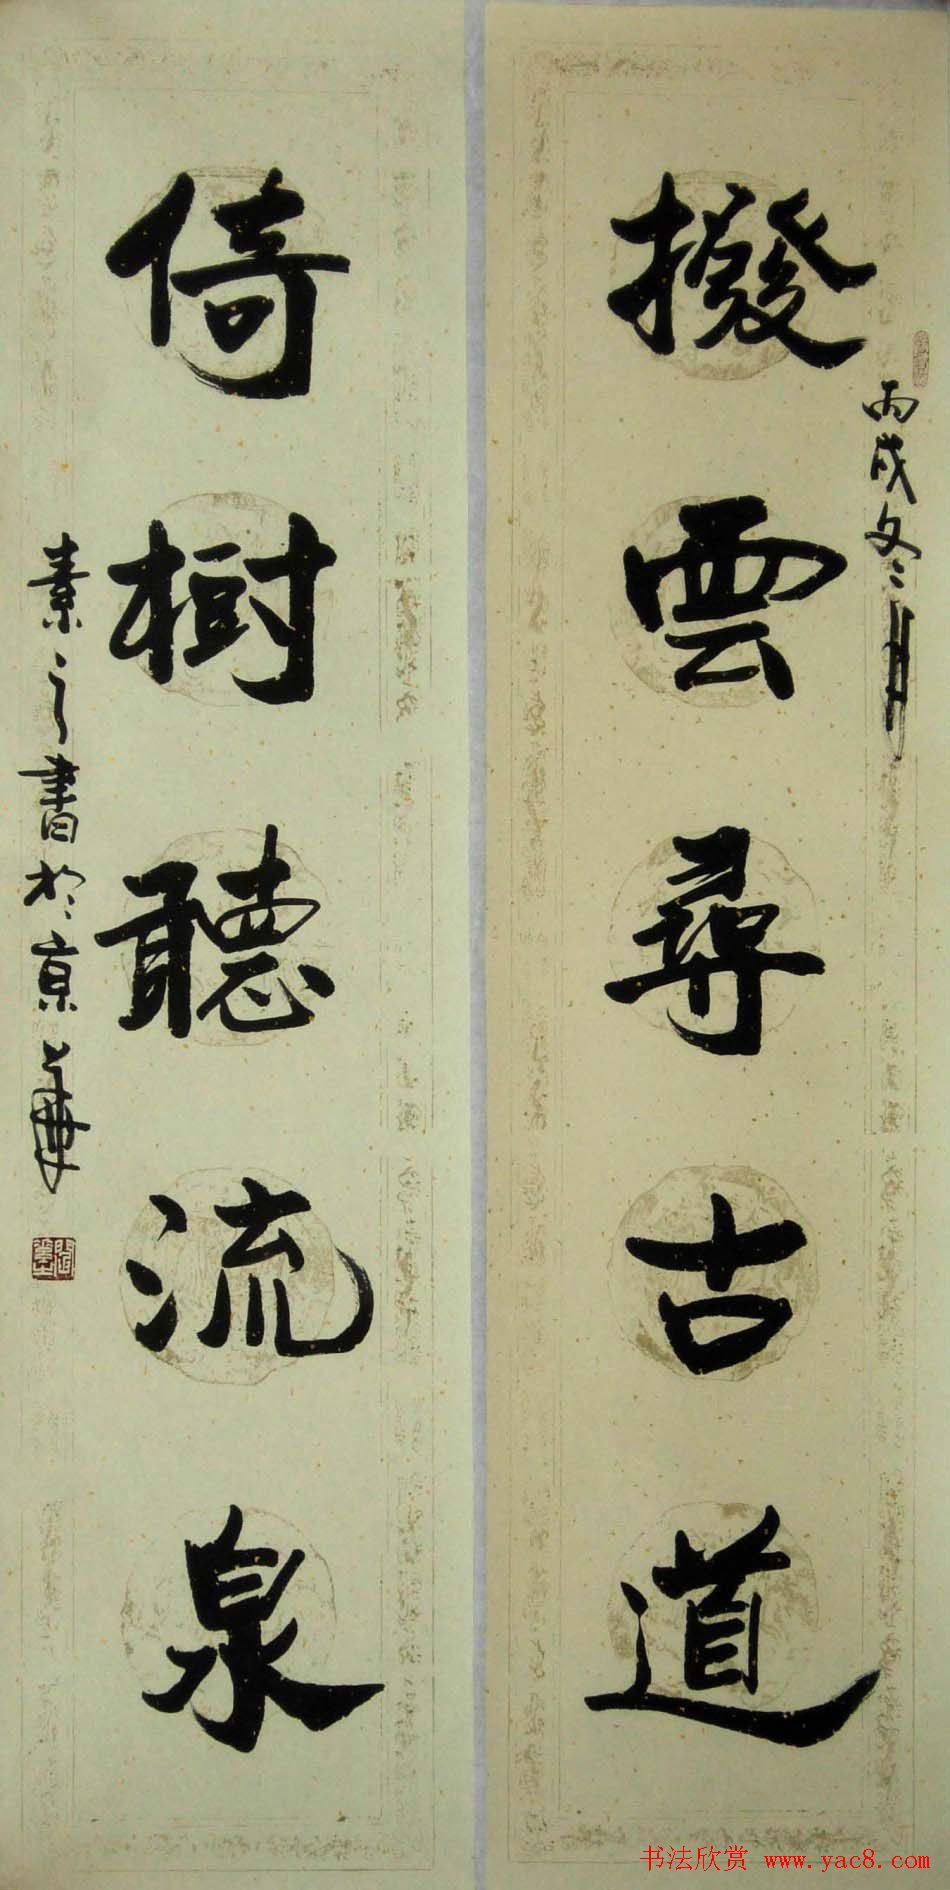 撥雲尋古道
丙戌冬月
倚樹聽流泉
素之書於京華
书法欣赏 www.yac8.com